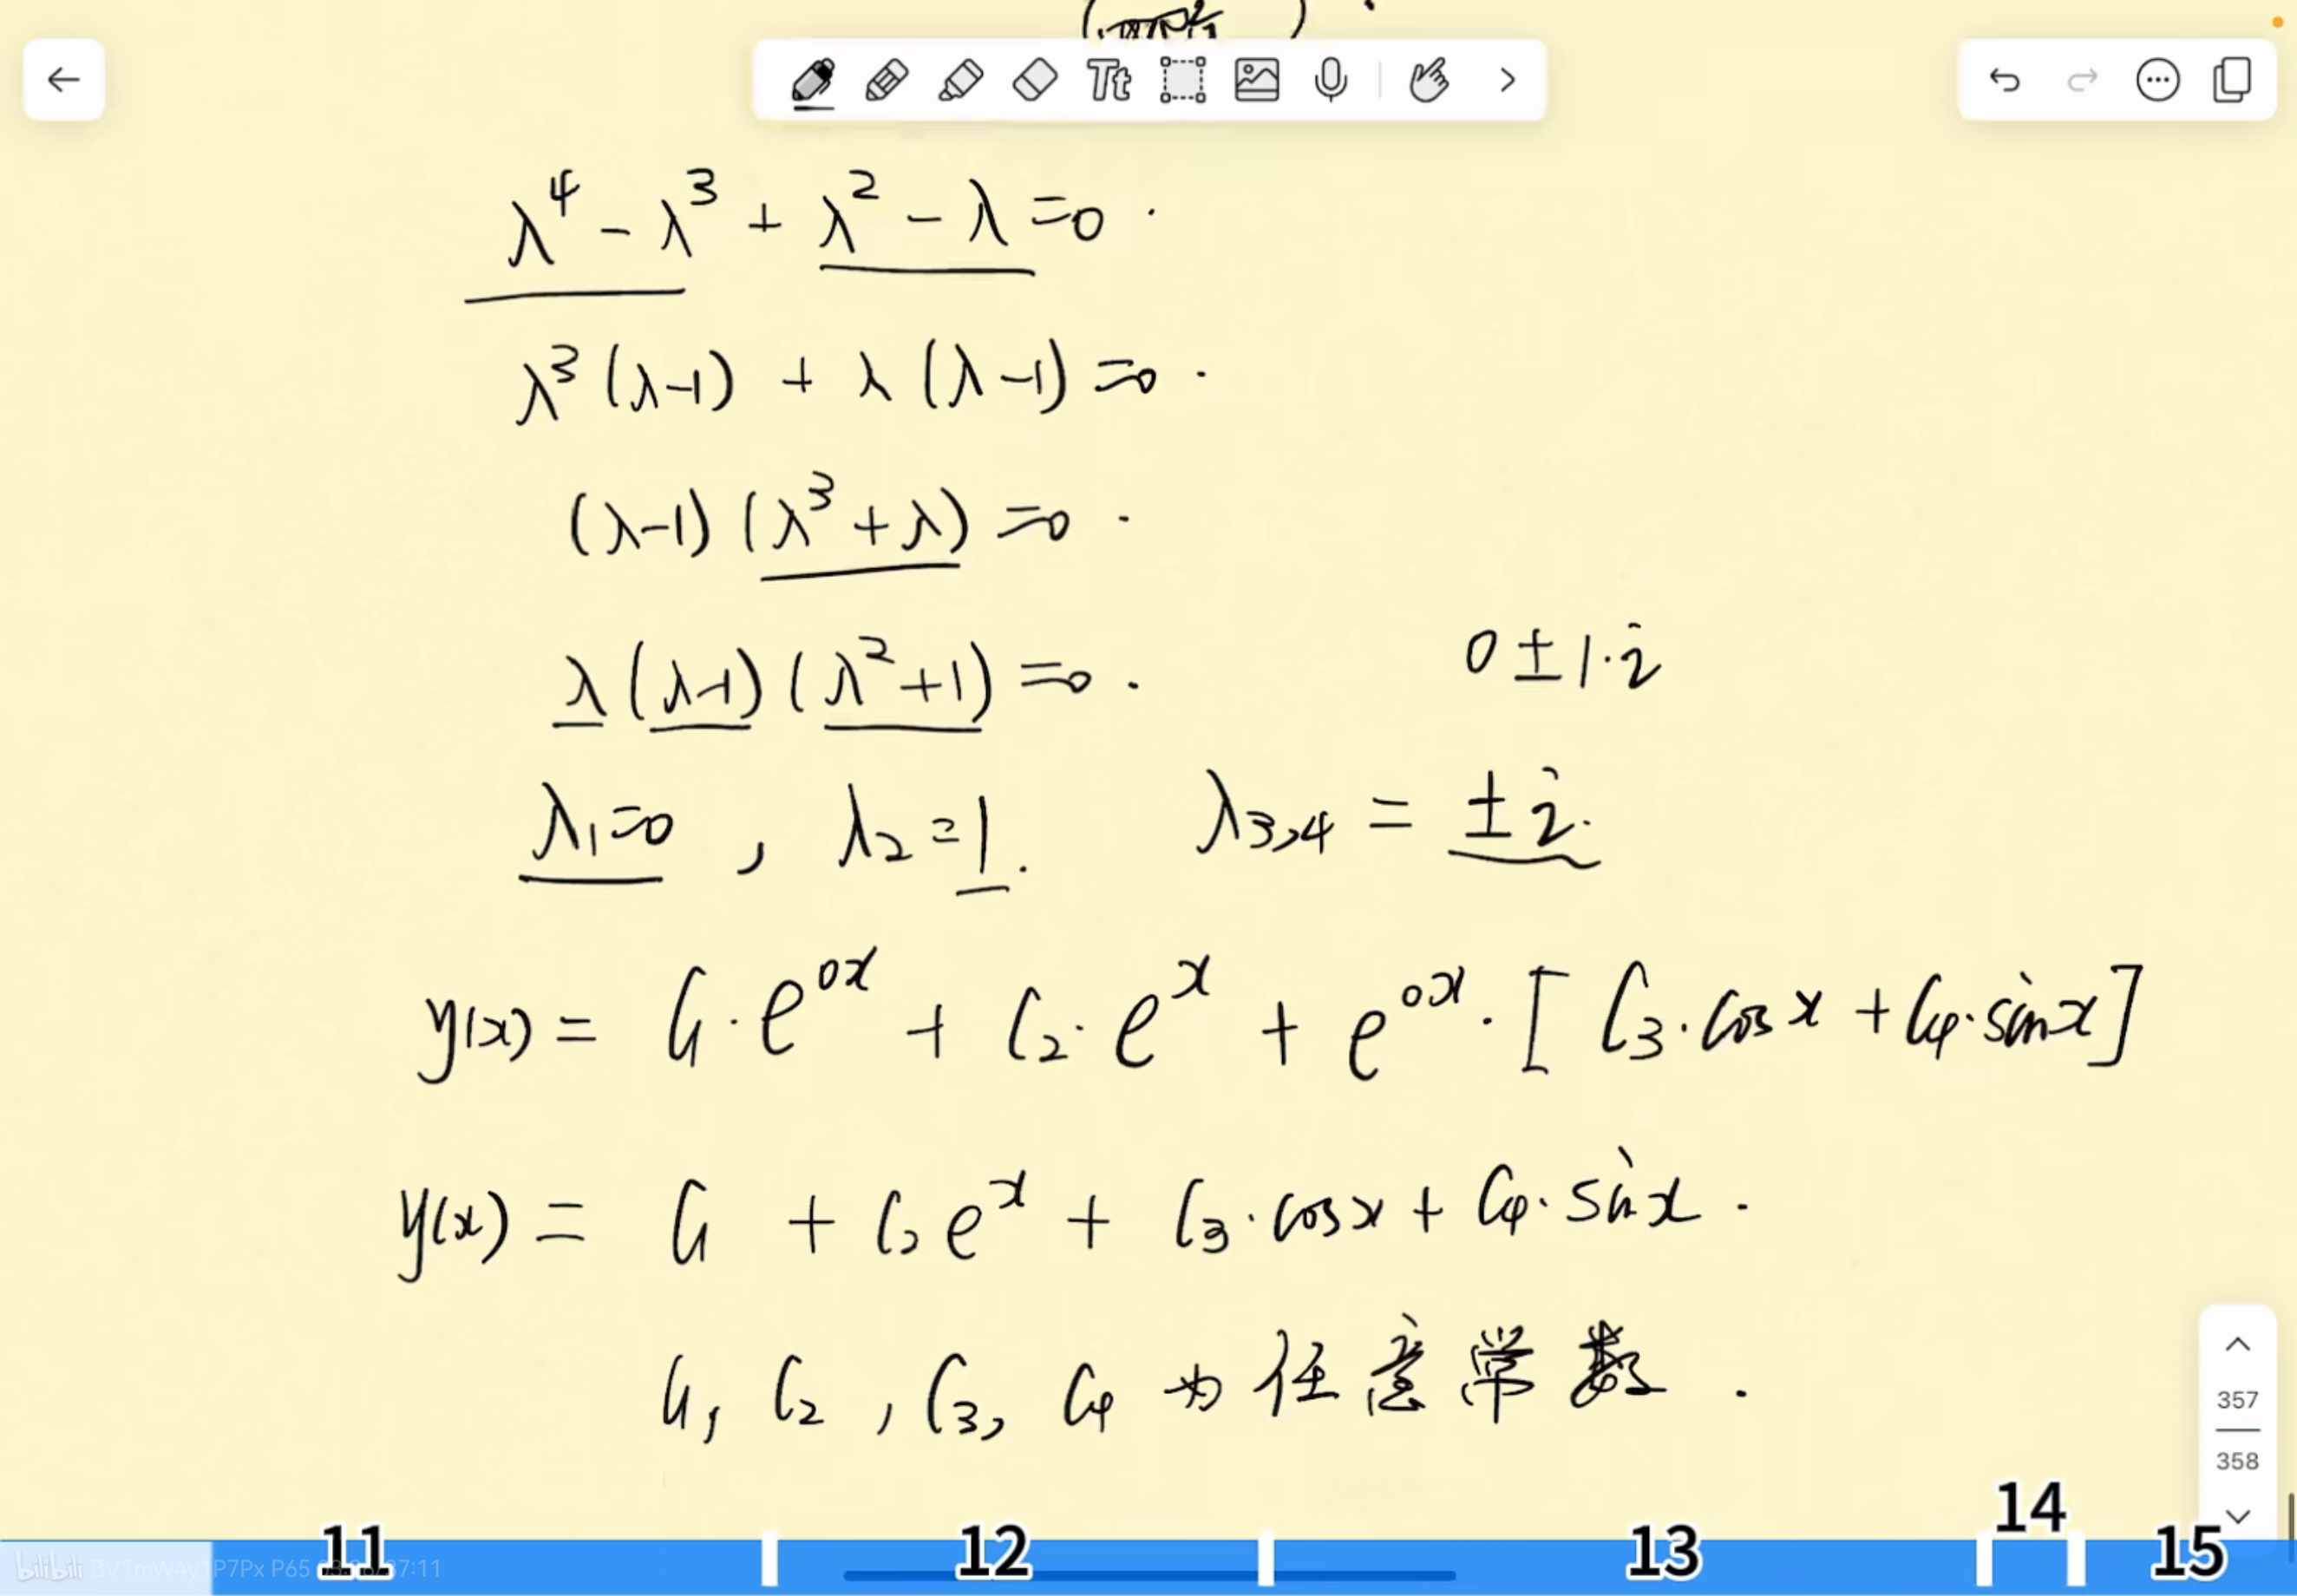 Tt
λ⁴ - λ³ + λ² - λ = 0 .
λ³ (λ-1) + λ (λ-1) = 0 .
(λ-1) (λ³ + λ) = 0 .
λ (λ-1) (λ² + 1) = 0 .
0 ± 1·i
λ₁ = 0 , λ₂ = 1 . λ₃,₄ = ± i .
y(x) = C₁ · e^{0x} + C₂ · e^x + e^{0x} · [ C₃ · cos x + C₄ · sin x ]
y(x) = C₁ + C₂ e^x + C₃ · cos x + C₄ · sin x .
C₁, C₂ , C₃, C₄ 为任意常数 .
357
358
11 12 13 14 15
bilibili BV1mW4y1P7Px P65
7:11